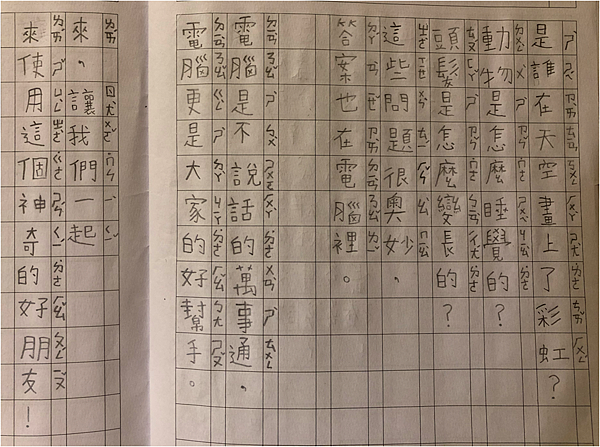 是誰在天空畫上了彩虹？
動物是怎麼睡覺的？
頭髮是怎麼變長的？
這些問題很奧妙，
答案也在電腦裡。
電腦是不說話的萬事通，
電腦更是大家的好幫手。
來，讓我們一起
來使用這個神奇的好朋友！